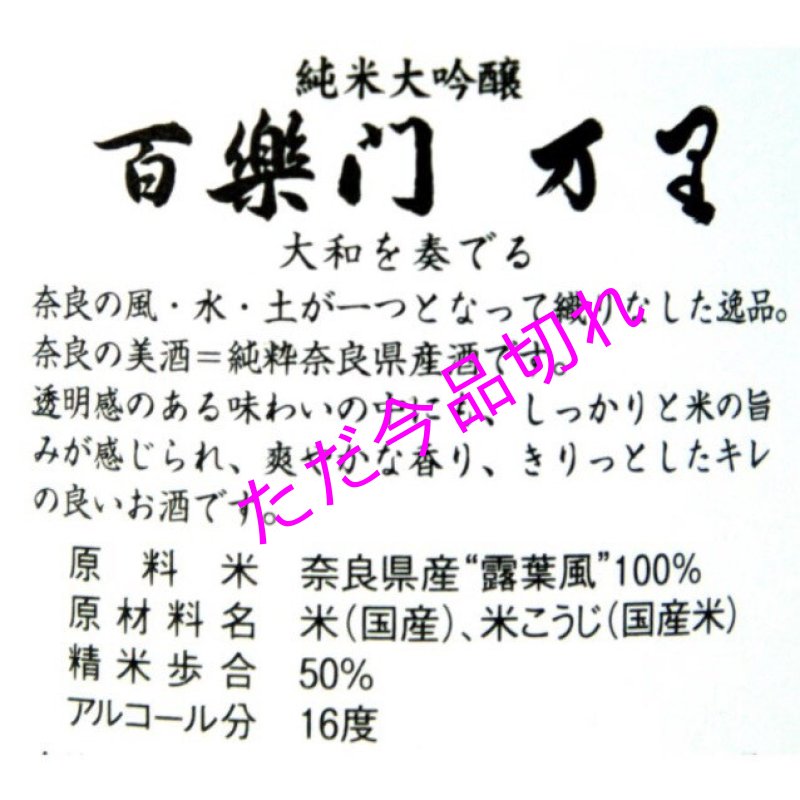 純米大吟醸
百樂门 万里
大和を奏でる
奈良の風・水・土が一つとなって織りなした逸品。
奈良の美酒＝純粋奈良県産酒です。
透明感のある味わいの中にも、しっかりと米の旨
みが感じられ、爽やかな香り、きりっとしたキレ
の良いお酒です。
ただ今品切れ
原料米 奈良県産“露葉風”100%
原材料名 米(国産)、米こうじ(国産米)
精米歩合 50%
アルコール分 16度